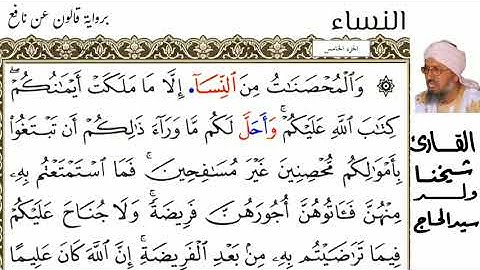 النساء
برواية قالون عن نافع
الجزء الخامس
۞ وَالْمُحْصَنَاتُ مِنَ النِّسَآءِ اِلَّا مَا مَلَكَتْ أَيْمَانُكُمْ
كِتَابَ اللَّهِ عَلَيْكُمْ وَأَحَلَّ لَكُم مَّا وَرَآءَ ذَالِكُمْ أَن تَبْتَغُوا
بِأَمْوَالِكُم مُّحْصِنِينَ غَيْرَ مُسَافِحِينَ فَمَا اسْتَمْتَعْتُم بِهِ
مِنْهُنَّ فَـَٔاتُوهُنَّ أُجُورَهُنَّ فَرِيضَةً وَلَا جُنَاحَ عَلَيْكُمْ
فِيمَا تَرَاضَيْتُم بِهِ مِنۢ بَعْدِ الْفَرِيضَةِ إِنَّ اللَّهَ كَانَ عَلِيمًا
القارئ
شيخنا
ولد
سيد الحاج